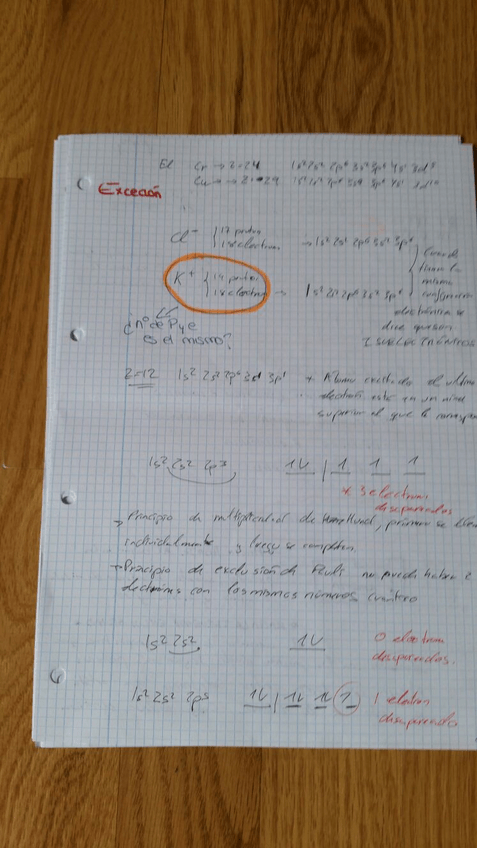 El Cr → Z=24 1s² 2s² 2p⁶ 3s² 3p⁶ 4s¹ 3d⁵
Cu → Z=29 1s² 2s² 2p⁶ 3s² 3p⁶ 4s¹ 3d¹⁰
Exceción
Cl⁻ { 17 protones
18 electrones → 1s² 2s² 2p⁶ 3s² 3p⁶
K⁺ { 19 protones
18 electrones → 1s² 2s² 2p⁶ 3s² 3p⁶
Cuando
tienen la
misma
configuración
electrónica se
dice que son
ISOELECTRÓNICOS
¿nº de P y e
es el mismo?
Z=12 1s² 2s² 2p⁶ 3s¹ 3p¹ * Átomo excitado el último
electrón está en un nivel
superior al que le
1s² 2s² 2p³ 1L | 1 1 1
* 3 electrones
desaparados
→ Principio de multiplicidad de Hund, primero se
individualmente y luego se completan.
→ Principio de exclusión de Pauli no puede haber 2
electrones con los mismos números
1s² 2s² 1L 0 electrones
desaparados.
1s² 2s² 2p⁵ 1L | 1L 1L 1 1 electron
desaparado